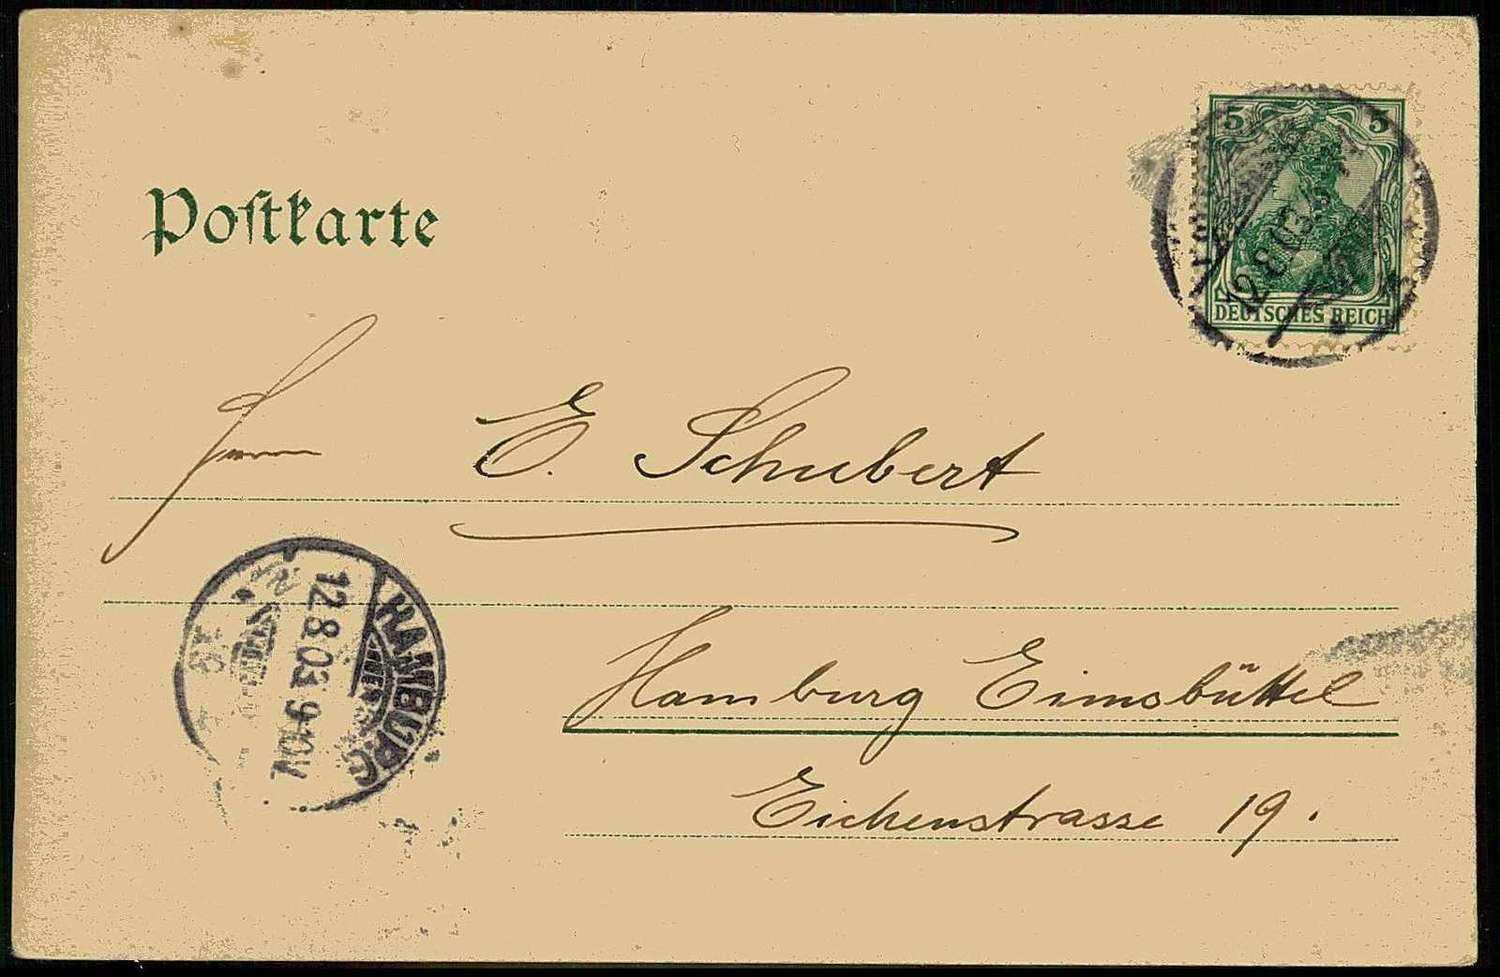 Postkarte
5 5
DEUTSCHES REICH
12.8.03.
Herrn E. Schubert
HAMBURG
12.8.03. 9-10V.
Hamburg Eimsbüttel
Eichenstrasse 19.